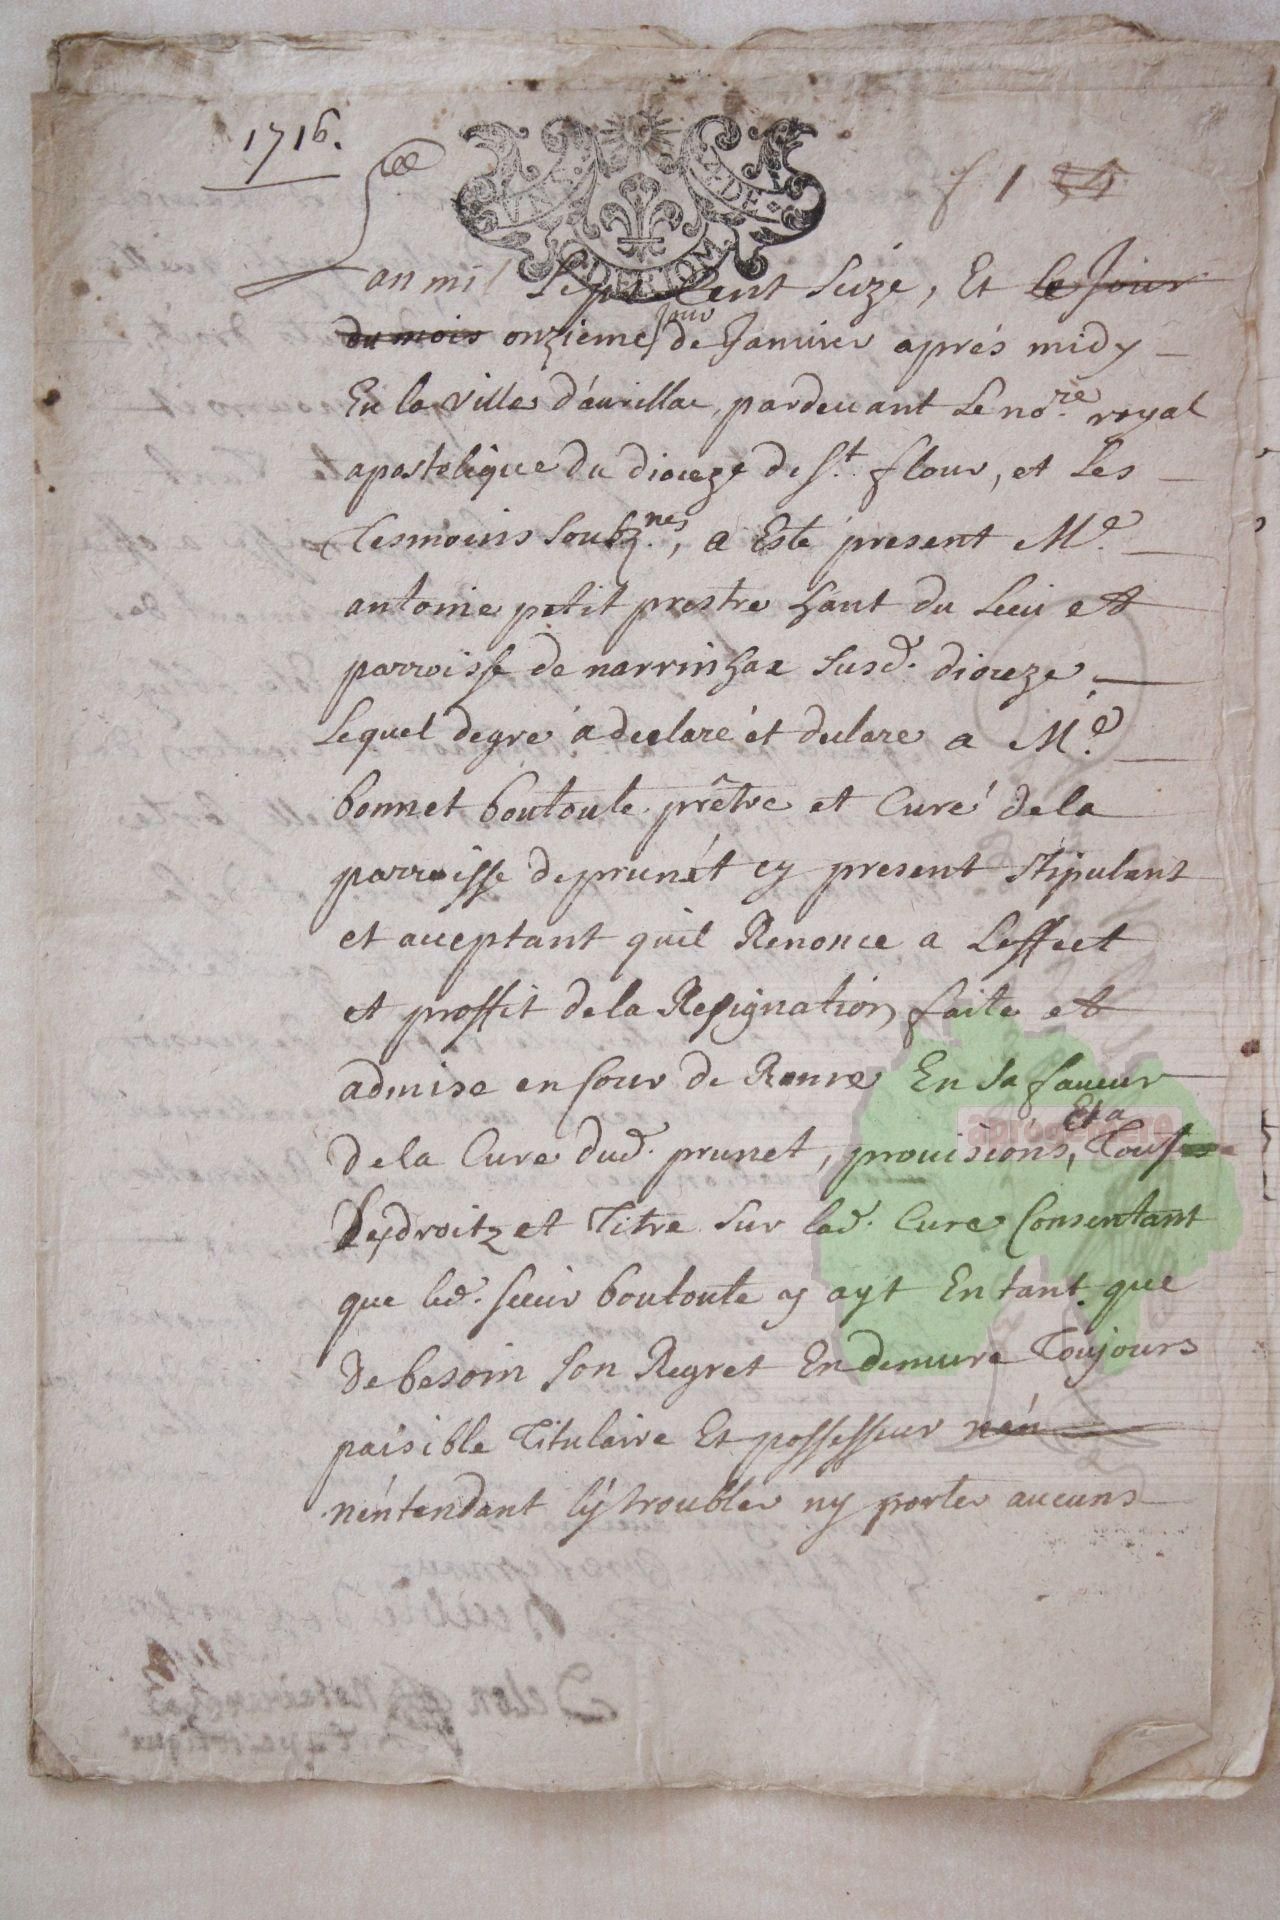 1716.
f. 1
DE
DE RIOM
L'an mil Sept Cent Seize, Et le Jour
du mois onzieme Jour de Janvier aprés midy
En la ville d'aurillac, pardeuant Le no.re royal
apostolique du dioceze de St. flour, et Les
Tesmoins Soubz.nes, a Esté present Me.
antoine petit prestre hant du Lieu et
parroisse de narrinhac Susd. dioceze
Lequel de gré a declaré et declare a Me.
bonnet boutoute prêtre et Curé de la
parroisse de prunét cy present Stipulant
et acceptant qu'il Renonce a L'effect
et proffit de la Resignation faite et
admise en Cour de Rome En Sa faueur
de la Cure dud. prunet, prouisions, Et a Tous
Les droitz et Titre Sur lad. Cure Consentant
que led. Sieur boutoute y ayt En tant que
de besoin Son Regret En demure Toujours
paisible Titulaire Et possesseur n'én
n'éntendant l'ÿ troubler ny porter aucuns
aprogemere